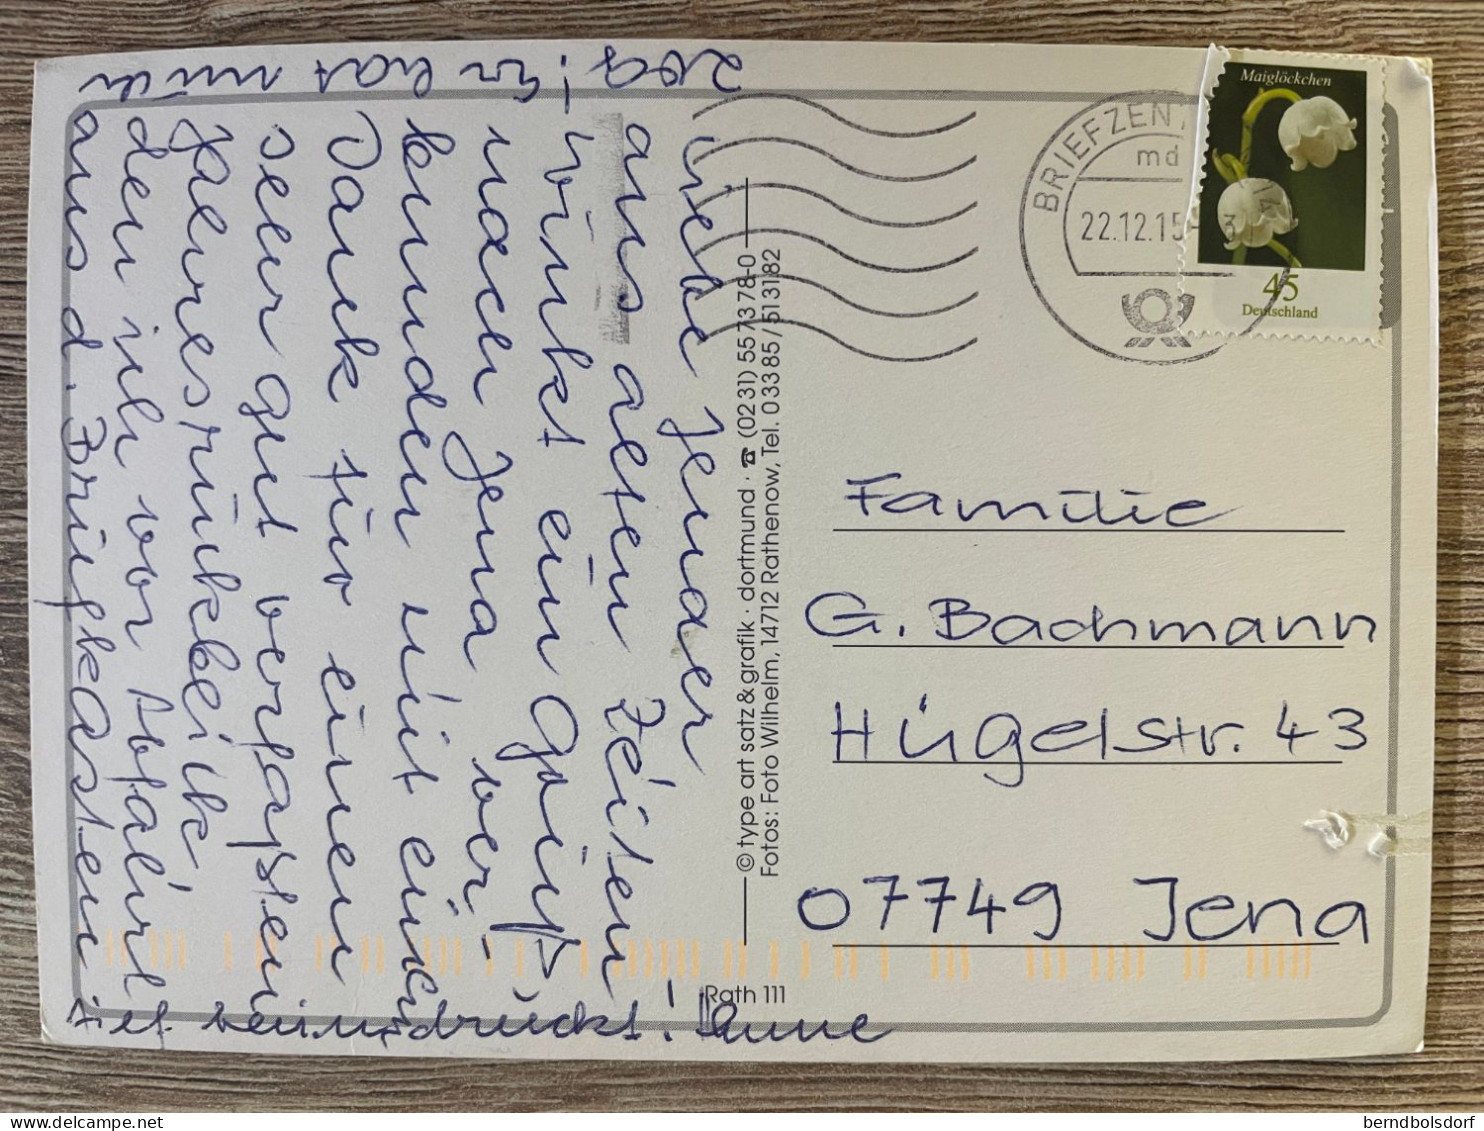 Liebe Jenaer
aus alten Zeiten
winkt ein Gruß,
nach Jena ver-
bunden mit einem
Dank für einen
sehr gut verfaßten
Jahresrückblick
den ich vor Abfahrt
aus d. Briefkasten
zog! Er hat mich
tief beeindruckt! Hanne
© type art satz & grafik · dortmund · ☎ (0231) 557378-0
Fotos: Foto Wilhelm, 14712 Rathenow, Tel. 03385/513182
Rath 111
BRIEFZEN
md
22.12.15
Maiglöckchen
45
Deutschland
Familie
G. Bachmann
Hügelstr. 43
07749 Jena
berndbolsdorf